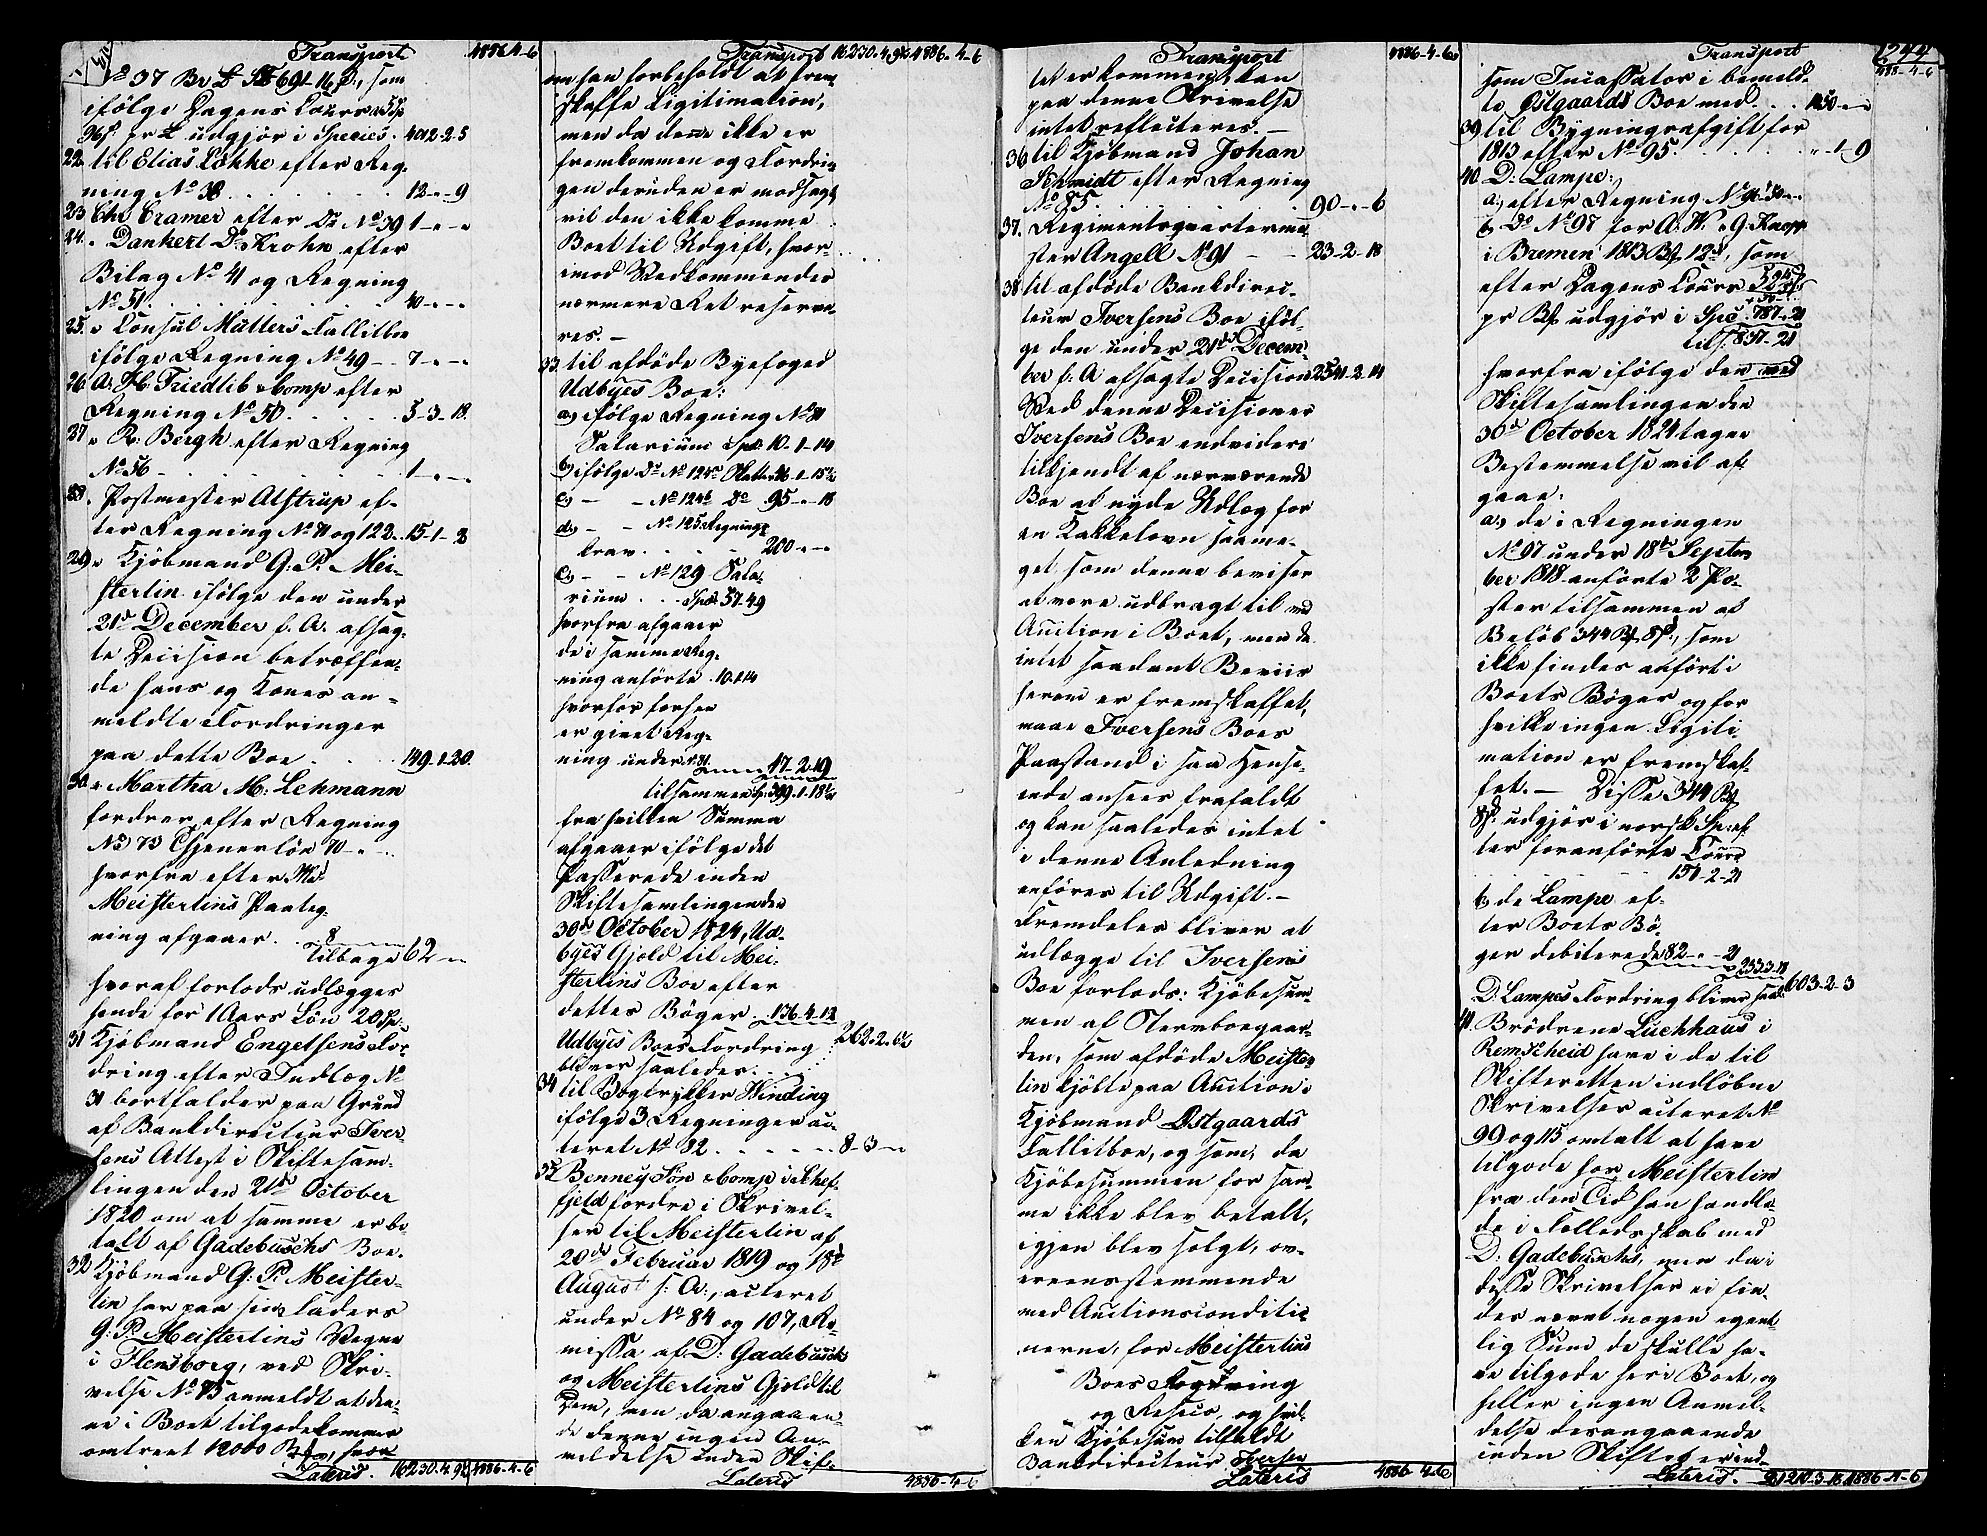 Transport 4886-4-6
No 37 Br £ St 691-16 β, som
ifølge Dagens Cours a 5 Sp
96 β pr £ udgjør i Species. 4012-2-5
22. til Elias Løkke efter Reg-
ning No 38 . . . 12-"-9
23 Chr Cramer efter Do No 39 1-"-"
24. " Dankert D. Krohn efter
Bilag No 41 og Regning
No 51. . . . 40-"-"
25. " Consul Mütters Fallitboe
ifølge Regning No 49 - - 7-"-"
26 A: H: Friedlib & Comp efter
Regning No 50 . . . 5-3-18
27 " R: Bergh efter Regning
No 56 - . . . 1-"-"
28. Postmester Alstrup ef-
ter Regning No 71 og 122. 15-1-2
29 " Kjøbmand G: P. Mei-
sterlin ifølge den under
21de December f. A. afsag-
te Decision betræffen-
de hans og Kones an-
meldte Fordringer
paa dette Boe . . . 149-1-20
30 " Martha M: Lehmann
fordrer efter Regning
No 73 Tjenerløn 70-"-"
hvorfra efter Md
Meisterlins Paateg-
ning afgaaer . . 8
tilbage 62-"-"
hvoraf forlods udlægges
hende for 1 Aars Løn 20 Sp:
31 Kjøbmand Engelsens For-
dring efter Indlæg No
31 bortfalder paa Grund
af Bankdirecteur Iver-
sens Attest i Skiftesam-
lingen den 21de October
1820 om at samme er be-
talt af Gadebuschs Boe.
32 Kjøbmand G: P. Meister-
lin har paa sin Faders
G: P. Meisterlins Vegne
i Flensborg, ved Skri-
velse No 75 anmeldt at den-
ne i Boet tilgodekommer
omtrent 12000 Rd, hvor
Lateris. 16230.4.9½ 4886-4-6
Transport 16230.4.9½ 4886-4-6
om han forbeholdt at frem-
skaffe Ligitimation,
men da denne ikke er
fremkommen og Fordrin-
gen desuden er modsagt
vil den ikke komme
Boet til Udgift, hvor-
imod Vedkommendes
nærmere Ret reserve-
res. -
33 til afdøde Byefoged
Udbyes Boe:
a, ifølge Regning No 71
Salarium Spd 10-1-14
b, ifølge Do No 124a
c, - - No 124b Do 95-"-18
d, - - No 125 Regnings
krav . . . 200-"-"
e, - - No 129 Sala-
rium . . Spd 57-49
hvorfra afgaaer
de i samme Reg-
ning anførte 10.1.14
hvorfor forhen
er givet Reg-
ning under No 71. 47-2-19
tilsammen Sp: 399-1-18½
fra hvilken Summa
afgaaer ifølge det
Passerede inden
Skiftesamlingen den
30te October 1824, Ud-
byes Gjeld til Mei-
sterlins Boe efter
dettes Bøger . 136.4.12
Udbyes Boes Fordring 262.2.6½
bliver saaledes . .
34 til Bogtrykker Winding
ifølge 3 Regninger ac-
teret No 82 . . . 8-3-"
35 Benney Søn & Comp i Schef-
fjeld fordre i Skrivel-
ser til Meisterlin af
20de Februar 1819 og 18de
August s: A:, acteret
under No 84 og 107, Re-
missa af D: Gadebusch
og Meisterlins Gjeld til
Dem, men da angaaen-
de denne ingen An-
meldelse inden Skif-
Lateris 4886-4-6
Transport 4886-4-6
tet er kommen kan
paa denne Skrivelse
intet reflecteres. -
36 til Kjøbmand Johan
Schmidt efter Regning
No 85 . . . 90-"-6
37. Regimentsquarterme-
ster Angell No 91 - - 23-2-18
38 til afdøde Bankdirec-
teur Iversens Boe iføl-
ge den under 21de Decem-
ber f. A afsagte Decision 2541-2-14
Ved denne Decision er
Iversens Boe endvidere
tilkjendt af nærværende
Boe at nyde Udlæg for
en Kakkelovn saame-
get som denne beviser
at være udbragt til ved
Auction i Boet, men da
intet saadant Beviis
herom er fremskaffet,
maae Iversens Boes
Paastand i saa Hense-
ende ansees frafaldt
og kan saaledes intet
i denne Anledning
anføres til Udgift. -
Fremdeles bliver at
udlægge til Iversens
Boe forlods: Kjøbesum-
men af Stermboegaar-
den, som afdøde Meister-
lin kjøbte paa Auction i
Kjøbmand Østgaards
Fallitboe, og som, da
Kjøbesummen for sam-
me ikke blev betalt,
igjen blev solgt, ov-
ereensstemmende
med Auctionsconditio-
nerne, for Meisterlins
Boes Regning
og Risico, og hvil-
ken Kjøbesum tilfaldt
Bankdirecteur Iversen
Lateris 4886-4-6
Transport 4886-4-6
som Incassator i bemeld-
te Østgaards Boe med . . 1450-"-"
39 til Bygningsafgift for
1813 efter No 95. . . . "-1-9
40. D: Lampe:
a, efter Regning No 96 50-"-
b, Do No 97 for A. W. & G. Knoop
i Bremen 1813 Rf 12 β, som
efter Dagens Cours
pr Rf udgjør i Spec 787-"-21
til S. 837-21
hvorfra ifølge den ved
Skiftesamlingen den
30te October 1824 tagne
Bestemmelse vil af-
gaae:
a, de i Regningen
No 97 under 18de Septem-
ber 1818 anførte 2 Po-
ster tilsammen at
Beløb 344 Rf 8 β, som
ikke findes anført i
Boets Bøger og for
hvilke ingen Ligiti-
mation er fremskaf-
fet. - Disse 344 Rf
8 β udgjør i norsk Sp: ef-
ter foranførte Cours
. . . 151-2-21
b, de Lampe ef-
ter Boets Bø-
ger debiterede 82-"-21
233.3.18
D: Lampes Fordring bliver saal. 603-2-3
41. Brødrene Luchhaus i
Remscheid have i de til
Skifteretten indløbne
Skrivelser acteret No
99 og 115 omtalt at have
tilgode hos Meisterlin
fra den Tid han handle-
de i Fælledsskab med
D: Gadebusch, men da i
disse Skrivelser ei fin-
des nævnt nogen egent-
lig Sum de skulle ha-
ve tilgode her i Boet, og
heller ingen Anmel-
delse desangaaende
inden Skiftet er ind-
Lateris. 21210-3-18 4886-4-6